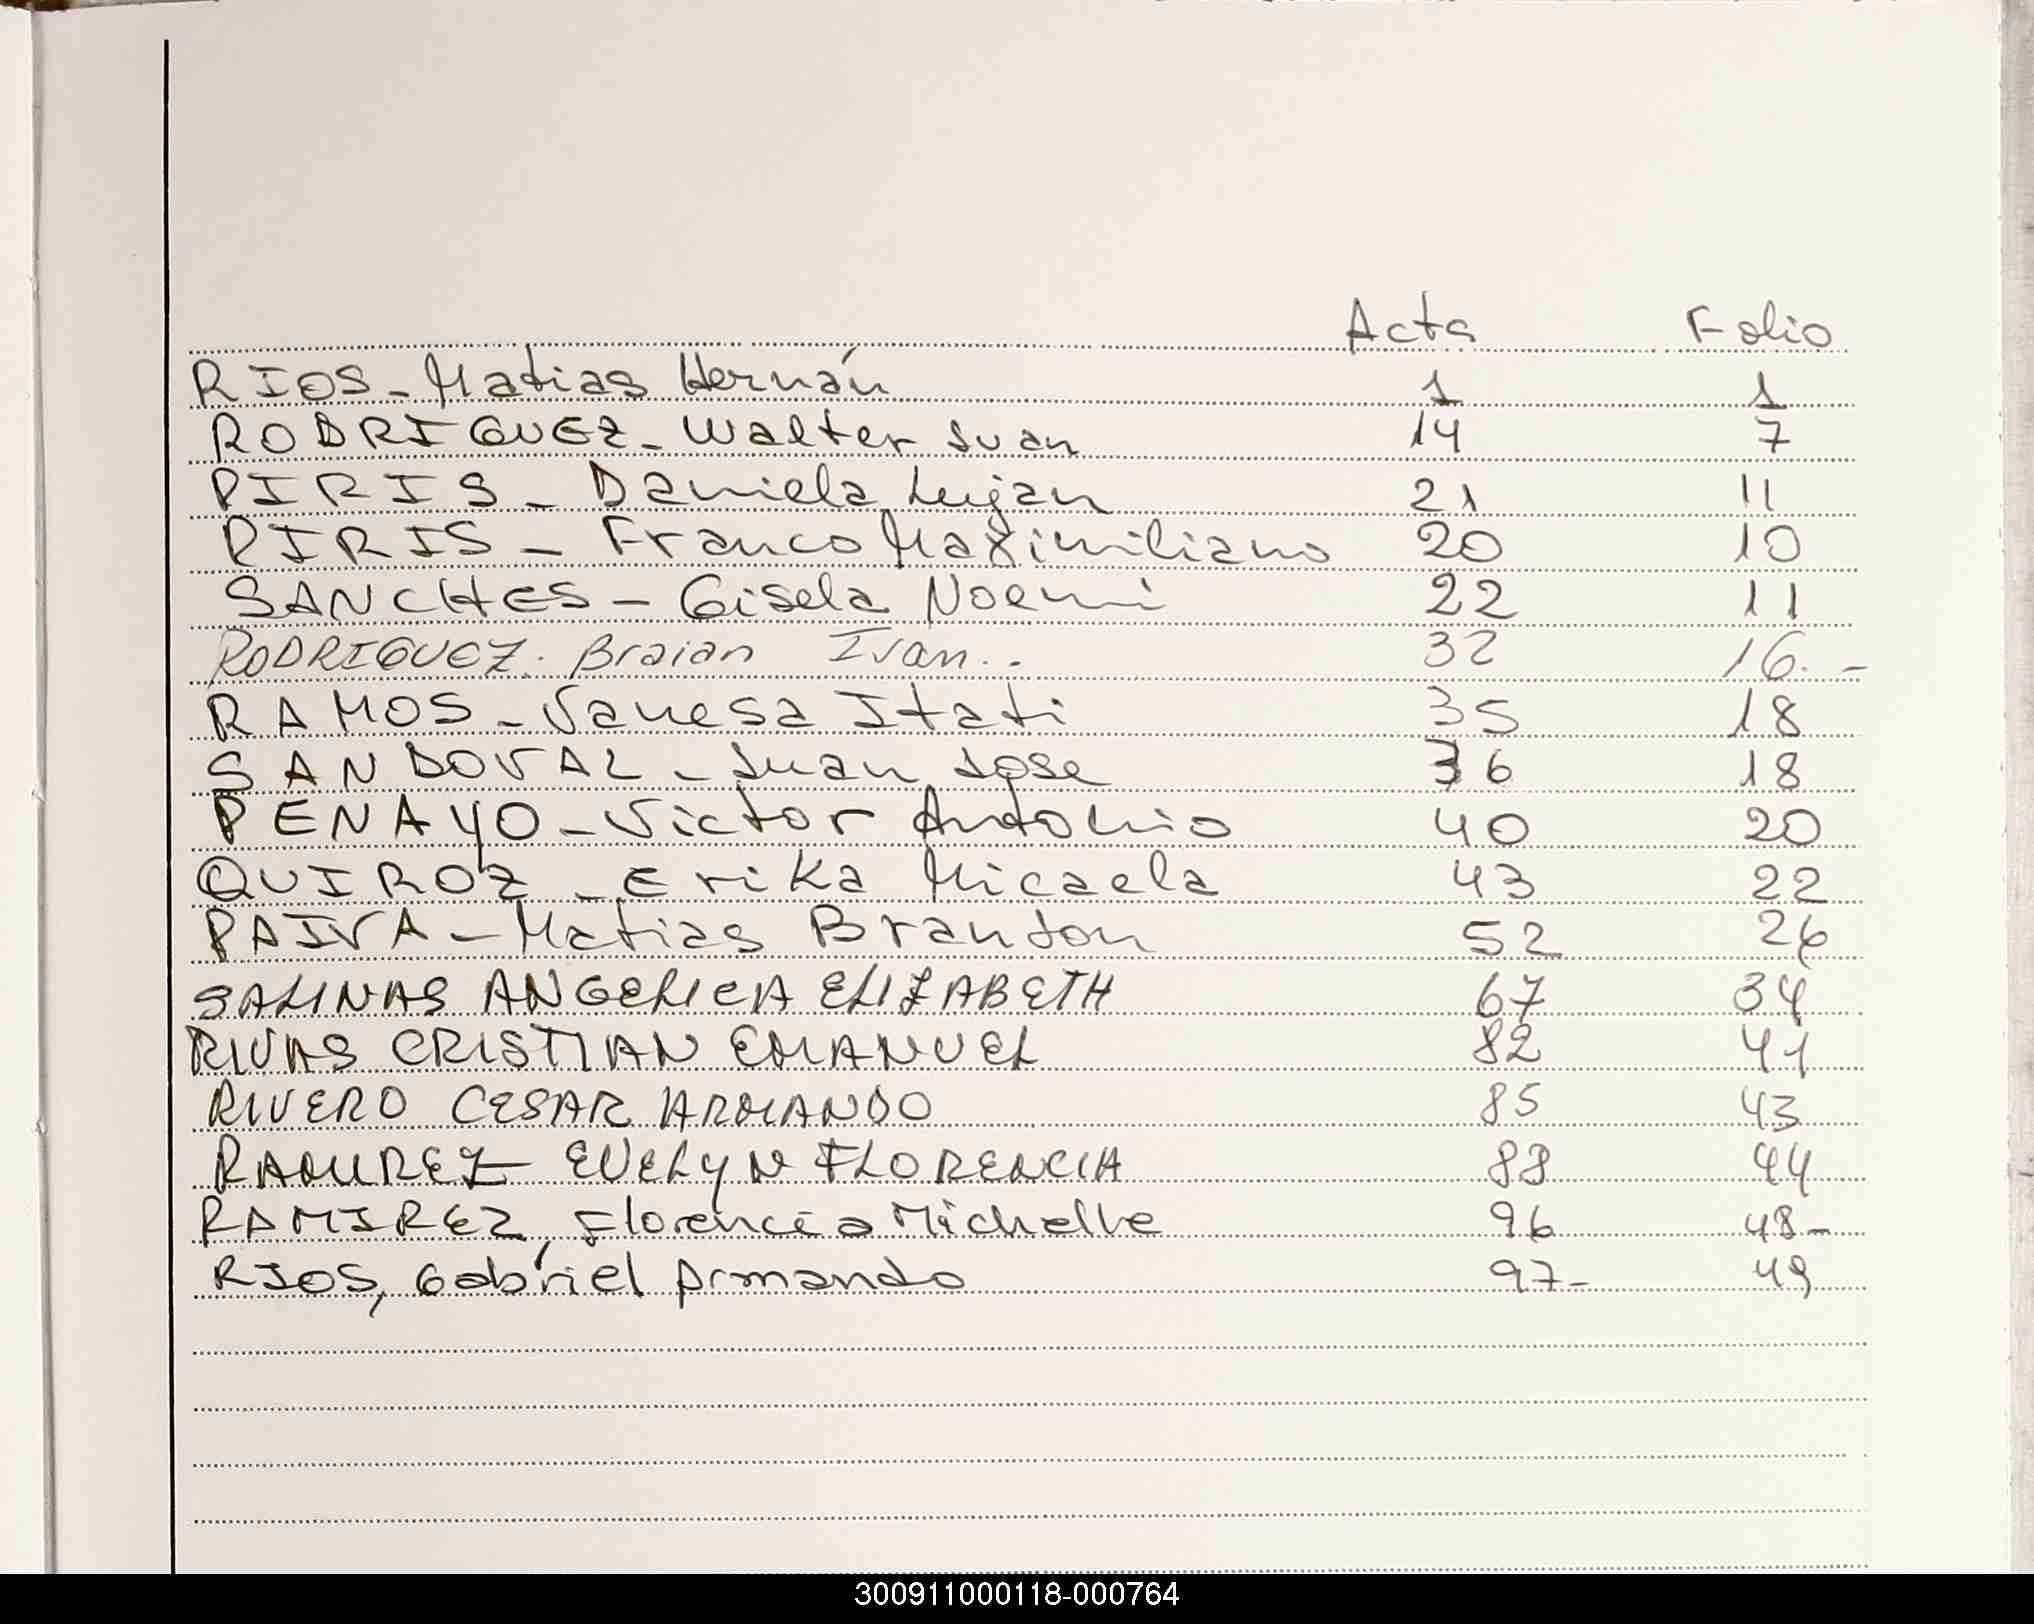 Acta Folio
RIOS - Matias Hernán 1 1
RODRIGUEZ - Walter Juan 14 7
PIRIS - Daniela Lujan 21 11
PIRIS - Franco Maximiliano 20 10
SANCHES - Gisela Noemi 22 11
RODRIGUEZ. Braian Ivan.. 32 16.-
RAMOS - Vanesa Itati 35 18
SANDOVAL - Juan Jose 36 18
PENAYO - Victor Antonio 40 20
QUIROZ - Erika Micaela 43 22
PAIVA - Matias Brandon 52 26
SALINAS ANGELICA ELIZABETH 67 34
RIVAS CRISTIAN EMANUEL 82 41
RIVERO CESAR ARMANDO 85 43
RAMIREZ EVELYN FLORENCIA 88 44
RAMIREZ, Florencia Michelle 96 48-
RIOS, Gabriel Armando 97- 49
300911000118-000764